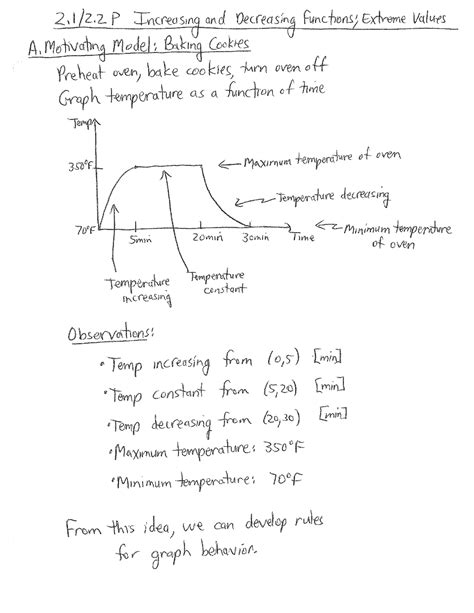 2.1/2.2 P Increasing and Decreasing Functions; Extreme Values
A. Motivating Model: Baking Cookies
Preheat oven, bake cookies, turn oven off
Graph temperature as a function of time
Temp
350°F
Maximum temperature of oven
Temperature decreasing
70°F
5min
20min
30min
Time
Minimum temperature
of oven
Temperature
increasing
Temperature
constant
Observations:
• Temp increasing from (0,5) [min]
• Temp constant from (5,20) [min]
• Temp decreasing from (20,30) [min]
• Maximum temperature: 350°F
• Minimum temperature: 70°F
From this idea, we can develop rules
for graph behavior.